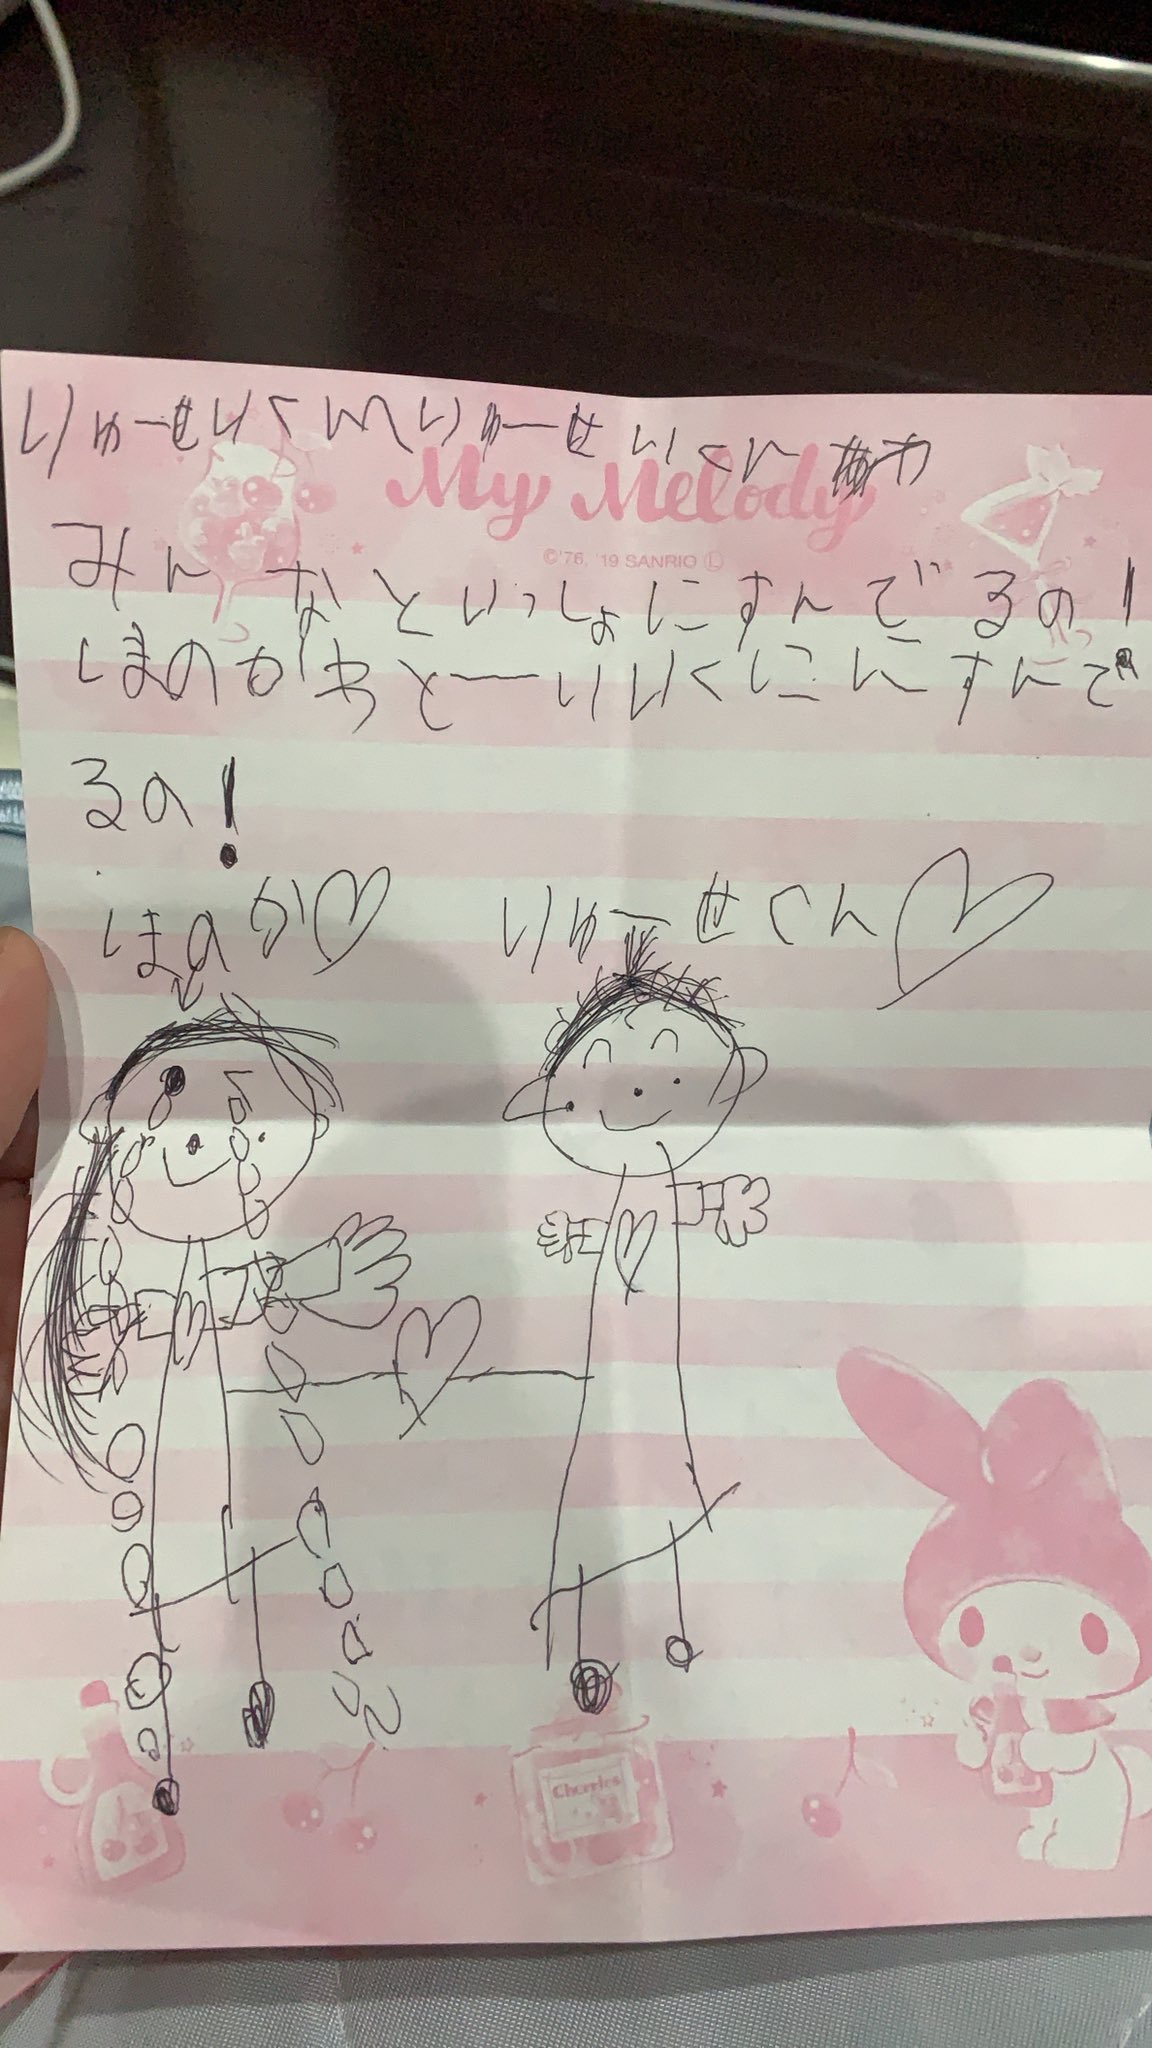 りゅーせいくんへりゅーせいくんわ
My Melody
©'76, '19 SANRIO Ⓛ
みんなといっしょにすんでるの!
ほのかわとーいいくににすんで
るの!
ほのか♡
りゅーせくん♡
Cherries